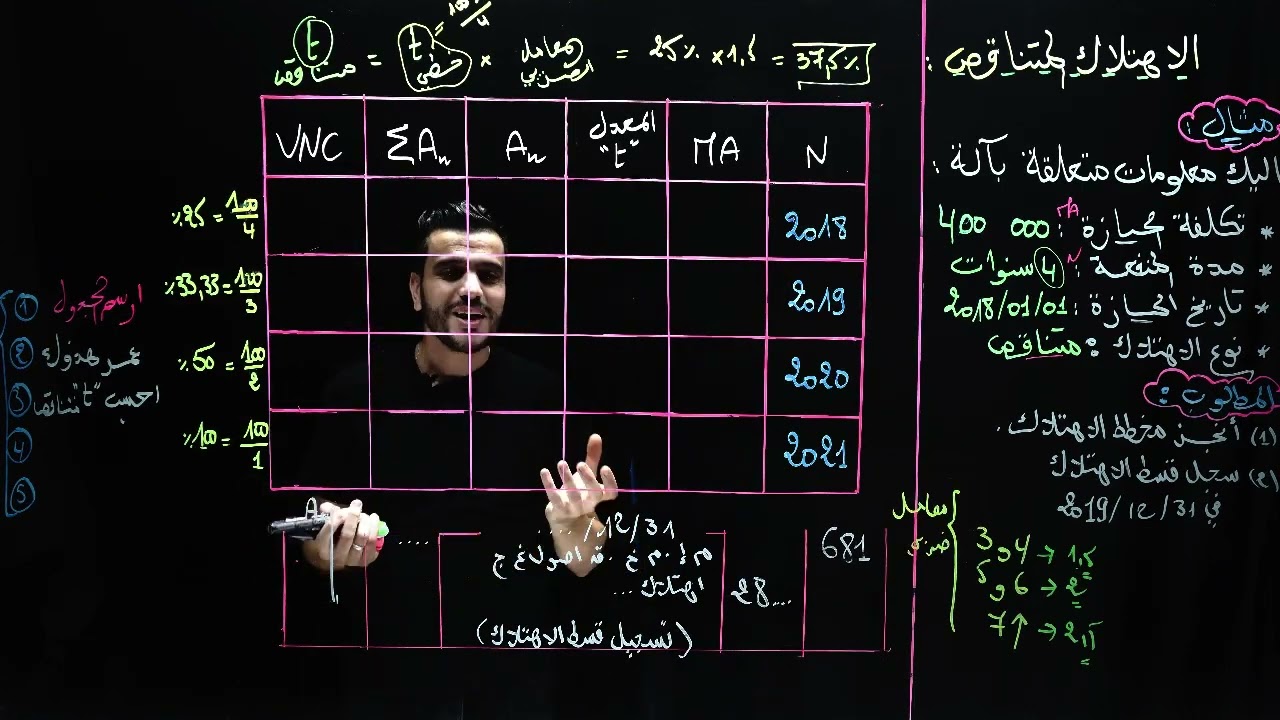 الاهتلاك المتناقص :
مثال :
اليك معلومات متعلقة بآلة :
* تكلفة الحيازة MA : 400 000
* مدة المنفعة N : 4 سنوات
* تاريخ الحيازة : 2018/01/01
* نوع الاهتلاك : متناقص
المطلوب :
(1) أنجز مخطط الاهتلاك .
(2) سجل قسط الاهتلاك
في 2019/12/31
معامل ضريبي
3 و 4 → 1,5
5 و 6 → 2
7↑ → 2,5
t متناقص = t خطي × معامل الضريبي = 25% × 1,5 = 37,5%
= 100/4
N MA المعدل "t" An ΣAn VNC
2018
2019
2020
2021
%25 = 100/4
%33,33 = 100/3
%50 = 100/2
%100 = 100/1
① ارسم الجدول
②
③ احسب "t" متناقص
④
⑤
12/31/....
681
28....
اهتلاك ...
....
(تسجيل قسط الاهتلاك)